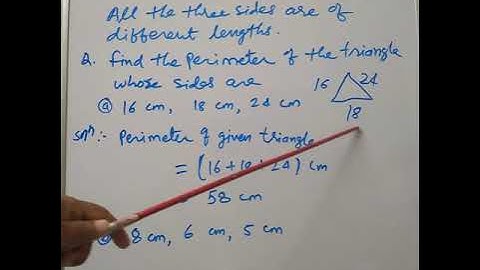 All the three sides are of
different lengths.
2. find the perimeter of the triangle
whose sides are
ⓐ 16 cm, 18 cm, 24 cm
16 24
18
solⁿ :- perimeter of given triangle
= (16 + 18 + 24) cm
58 cm
8 cm, 6 cm, 5 cm